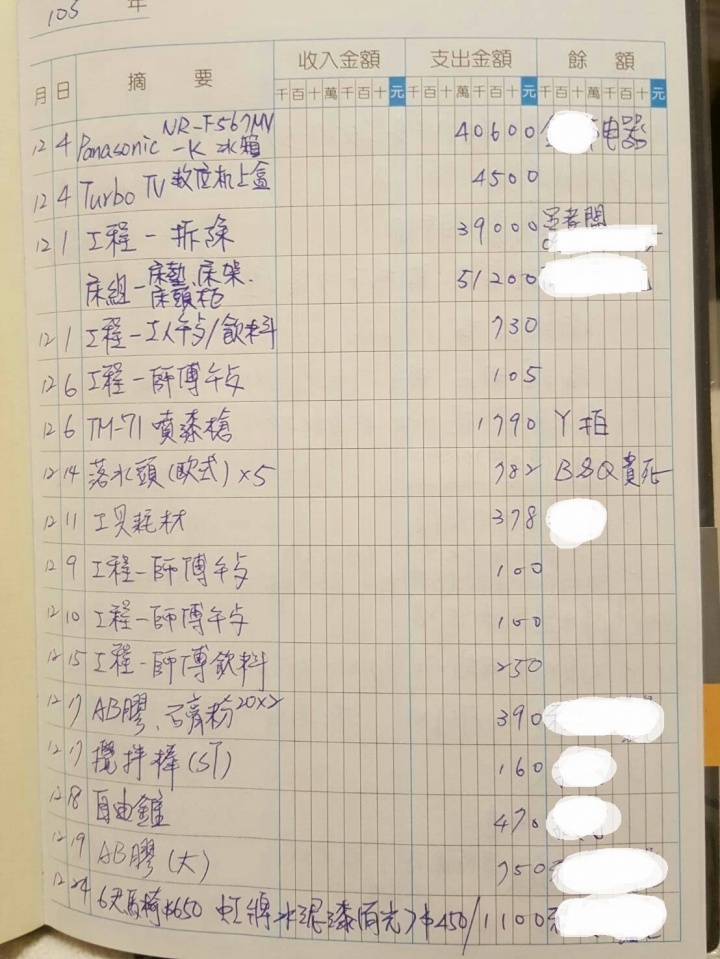 105 年
月 日 摘 要 收入金額 支出金額 餘 額
千百十萬千百十元 千百十萬千百十元 千百十萬千百十元
12 4 Panasonic NR-F567MV -K 冰箱 40600 电器
12 4 Turbo TV 数位机上盒 4500
12 1 工程－拆除 39000
床組－床墊、床架、床頭柜 51200
12 1 工程－工人午歺/飲料 730
12 6 工程－師傅午歺 105
12 6 TM-71 噴漆槍 1790 Y拍
12 14 落水頭(歐式)×5 782 B&Q貴死
12 11 工具耗材 378
12 9 工程－師傅午歺 100
12 10 工程－師傅午歺 100
12 15 工程－師傅飲料 250
12 17 AB膠、石膏粉20×2 390
12 17 攪拌棒(ST) 160
12 18 自由錐 470
12 19 AB膠(大) 750
12 24 6尺馬椅$650 虹牌水泥漆(百光)$450/1100